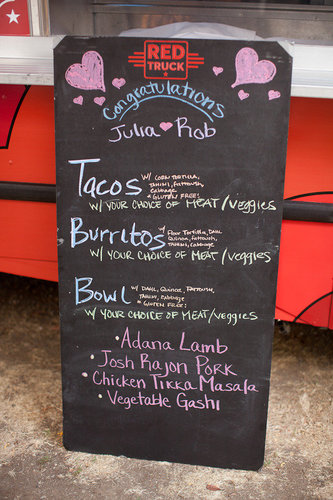 RED
TRUCK
Congratulations
Julia Rob
Tacos
w/ CORN TORTILLA,
TAHINI, FATTOUSH,
Cabbage
* GLUTEN FREE!
w/ YOUR CHOICE OF MEAT/Veggies
Burritos
w/ Flour Tortilla, DAHL
Quinoa, fattoush,
TAHINI, Cabbage
w/ YOUR CHOICE OF MEAT/Veggies
Bowl
w/ DAHL, Quinoa, FATTOUSH,
TAHINI, Cabbage
* GLUTEN FREE!
w/ YOUR CHOICE OF MEAT/Veggies
• Adana Lamb
• Josh Rajon PORK
• Chicken TIKKA Masala
• Vegetable Gashi